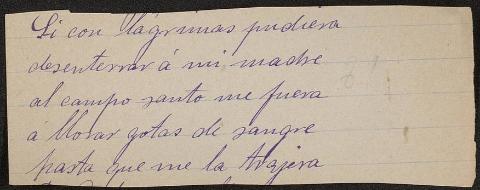 Si con llágrimas pudiera
desenterrar á mi madre
al campo santo me fuera
á llorar gotas de sangre
pasta que me la trajera